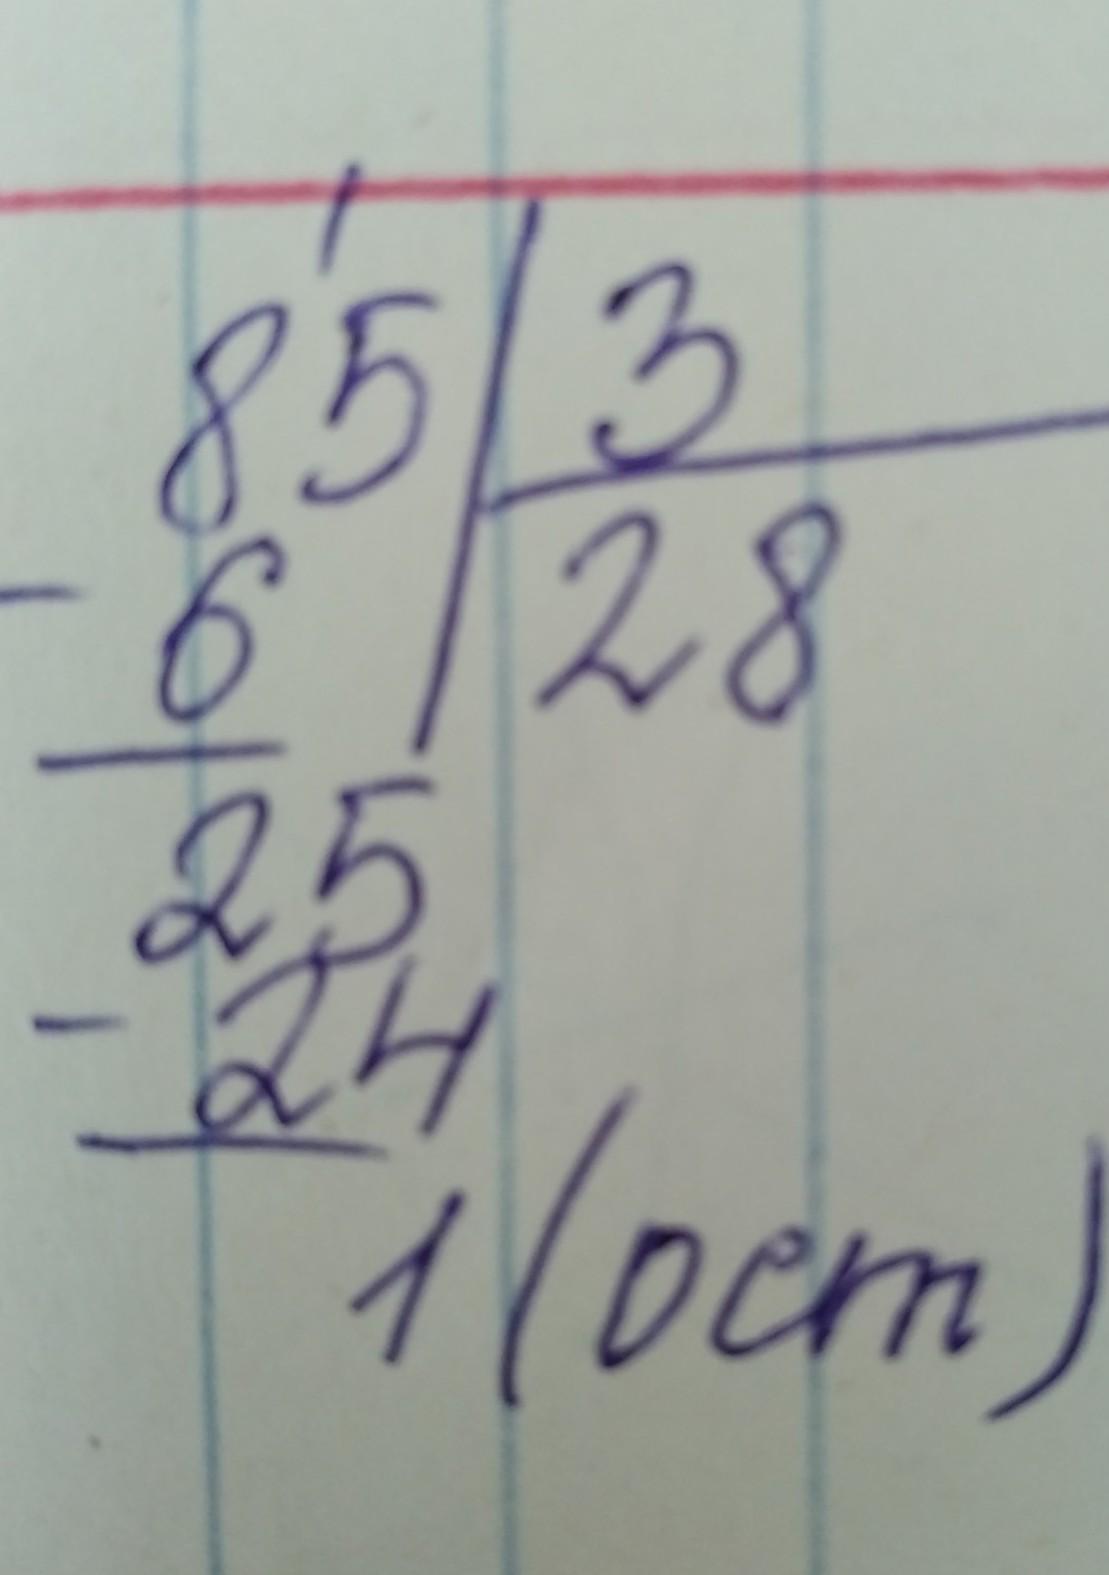 85 | 3
- 6 | 28
25
- 24
1 (ост)